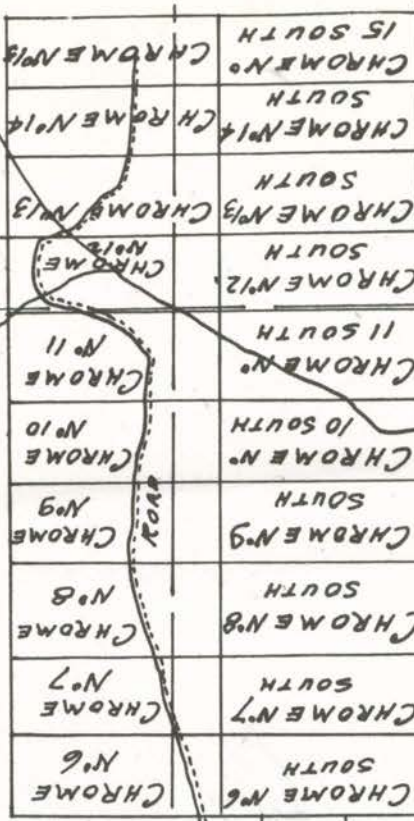 CHROME Nº6
SOUTH
CHROME
Nº6
CHROME Nº7
SOUTH
CHROME
Nº7
CHROME Nº8
SOUTH
CHROME
Nº8
CHROME Nº9
SOUTH
ROAD
CHROME
Nº9
CHROME Nº
10 SOUTH
CHROME
Nº10
CHROME Nº
11 SOUTH
CHROME
Nº11
CHROME Nº12
SOUTH
CHROME
Nº12
CHROME Nº13
SOUTH
CHROME Nº13
CHROME Nº14
SOUTH
CHROME Nº14
CHROME Nº
15 SOUTH
CHROME Nº15